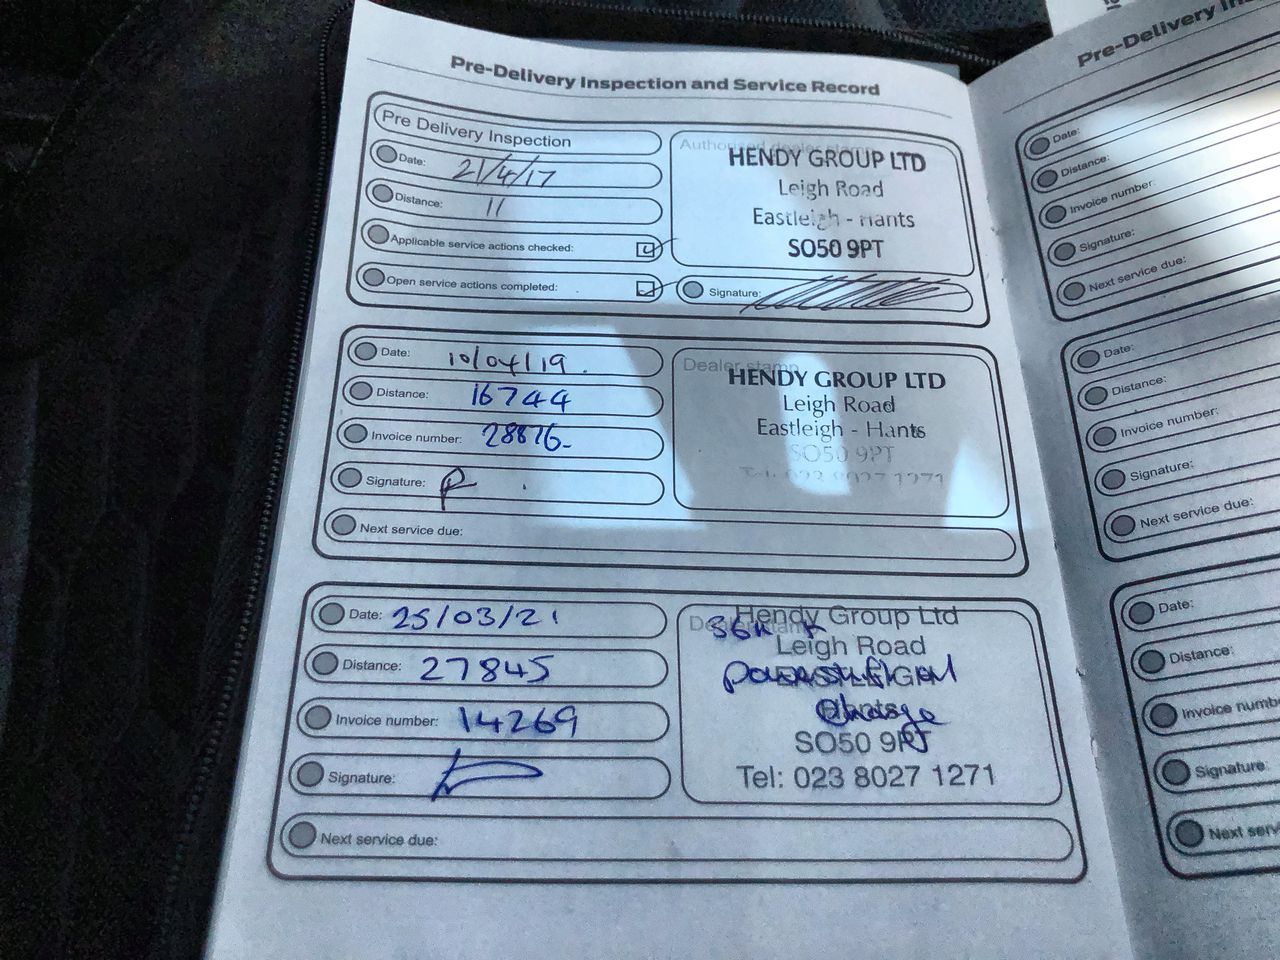 Pre-Delivery Inspection and Service Record
Pre Delivery Inspection
Date: 21/4/17
Distance: 11
Applicable service actions checked:
Open service actions completed:
Authorised dealer stamp
HENDY GROUP LTD
Leigh Road
Eastleigh - Hants
SO50 9PT
Signature:
Date: 10/04/19.
Distance: 16744
Invoice number: 28876-
Signature:
Next service due:
Dealer stamp
HENDY GROUP LTD
Leigh Road
Eastleigh - Hants
SO50 9PT
Tel: 023 8027 1271
Date: 25/03/21
Distance: 27845
Invoice number: 14269
Signature:
Next service due:
Dealer stamp
Hendy Group Ltd
36K
Leigh Road
EASTLEIGH
Hants
Change
SO50 9PT
Tel: 023 8027 1271
Pre-Delivery
Date:
Distance:
Invoice number:
Signature:
Next service due:
Date:
Distance:
Invoice number:
Signature:
Next service due:
Date:
Distance:
Invoice numb
Signature:
Next serv